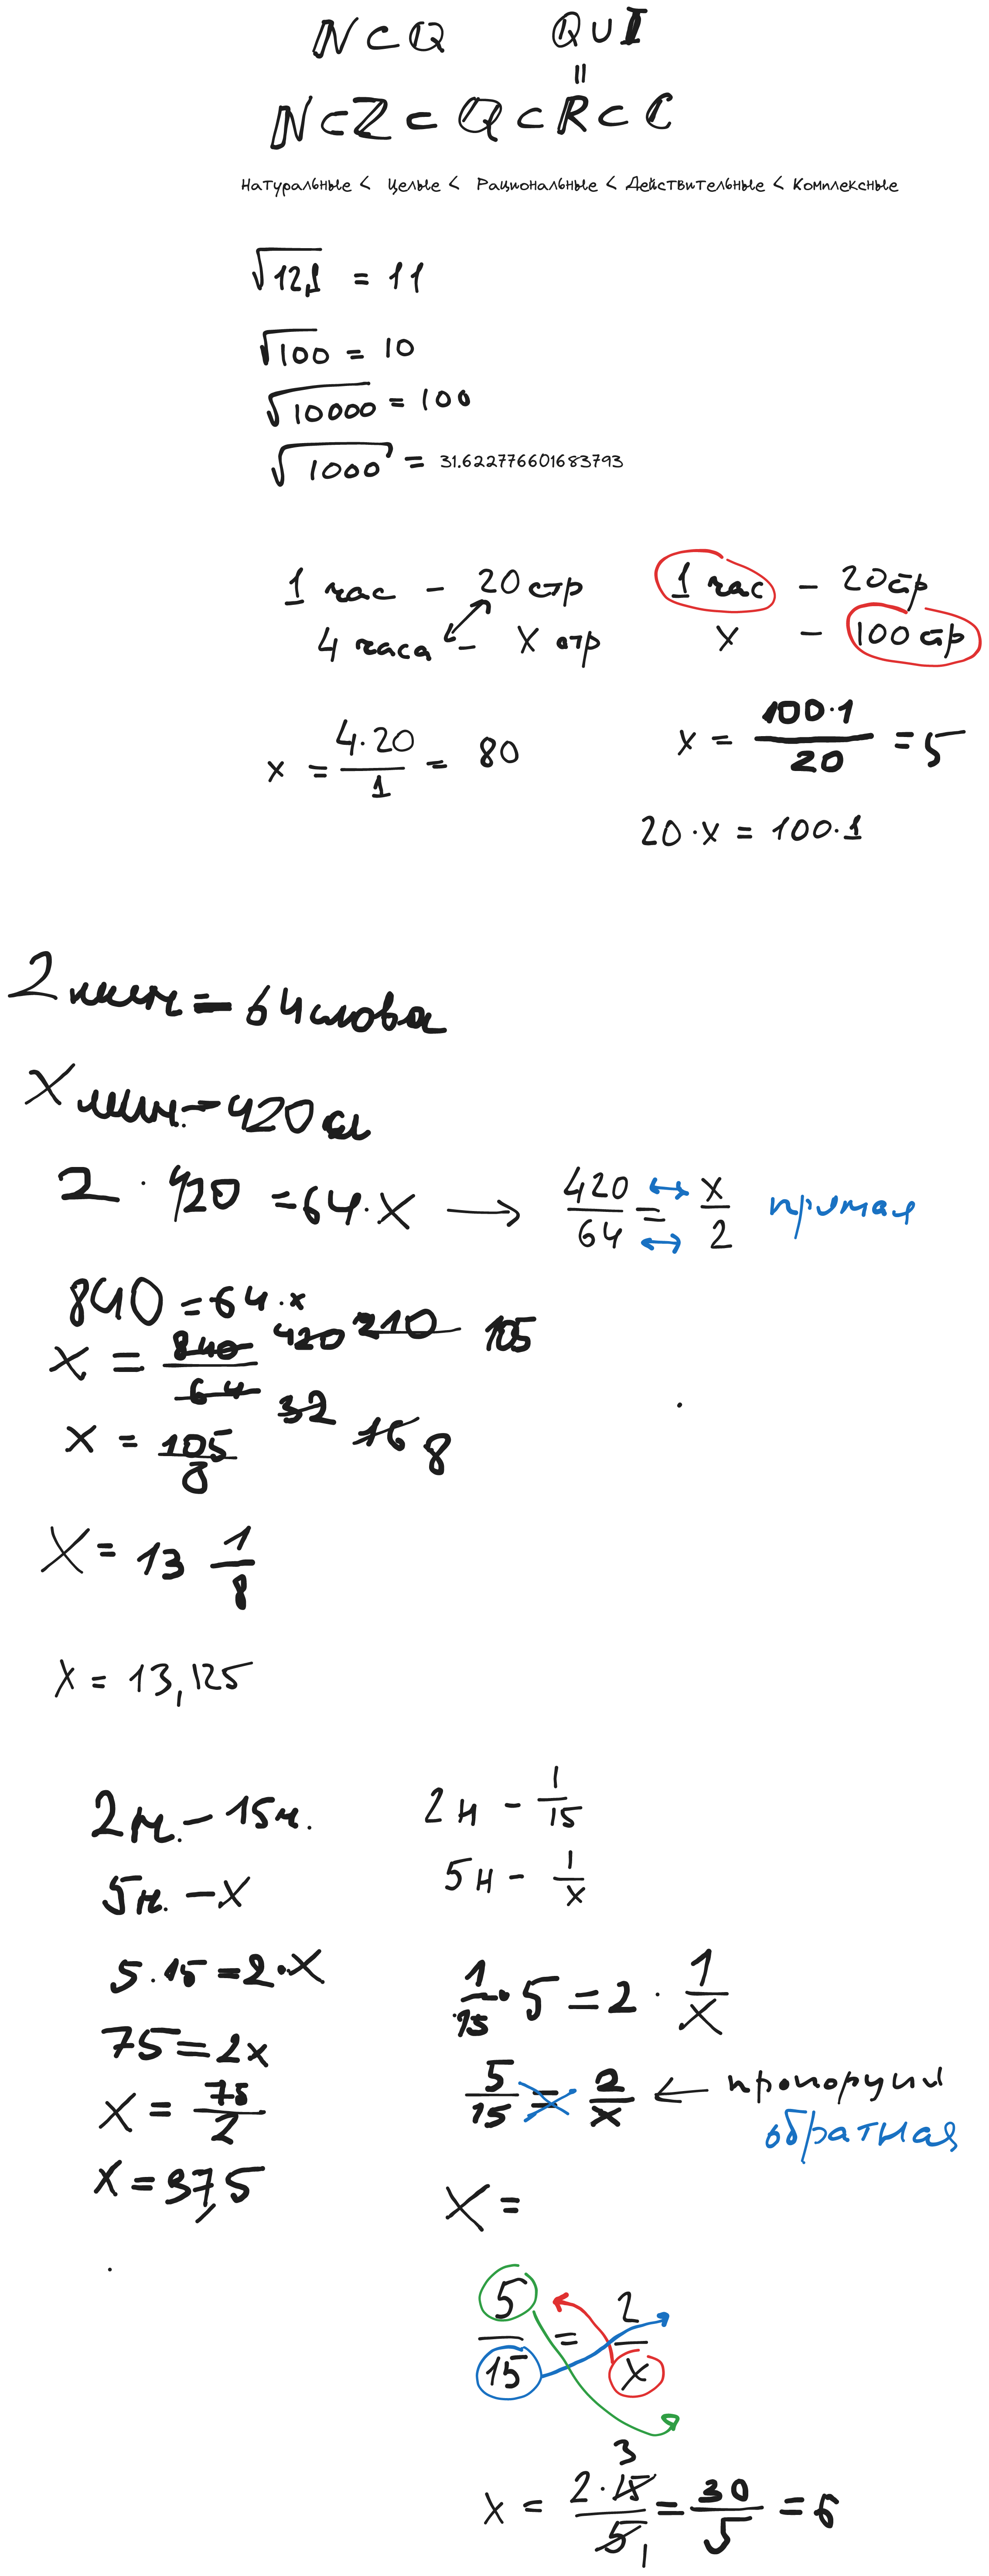 ℕ ⊂ ℚ ℚ ∪ 𝕀
=
ℕ ⊂ ℤ ⊂ ℚ ⊂ ℝ ⊂ ℂ
Натуральные < Целые < Рациональные < Действительные < Комплексные
√121 = 11
√100 = 10
√10000 = 100
√1000 = 31.622776601683793
1 час - 20 стр 1 час - 20 стр
4 часа - x стр x - 100 стр
x = 4·20/1 = 80 x = 100·1/20 = 5
20·x = 100·1
2 мин. = 64 слова
X мин. - 420 сл
2 · 420 = 64·x → 420/64 = x/2 прямая
840 = 64·x
x = 840/64 420/32 210/16 105/8
x = 105/8
X = 13 1/8
X = 13,125
2н. - 15м. 2н - 1/15
5н. - x 5н - 1/x
5·15 = 2·x 1/15·5 = 2·1/x
75 = 2x 5/15 = 2/x ← пропорции
x = 75/2 обратная
x = 37,5 x =
5/15 = 2/x
3
x = 2·15/5 = 30/5 = 6
1